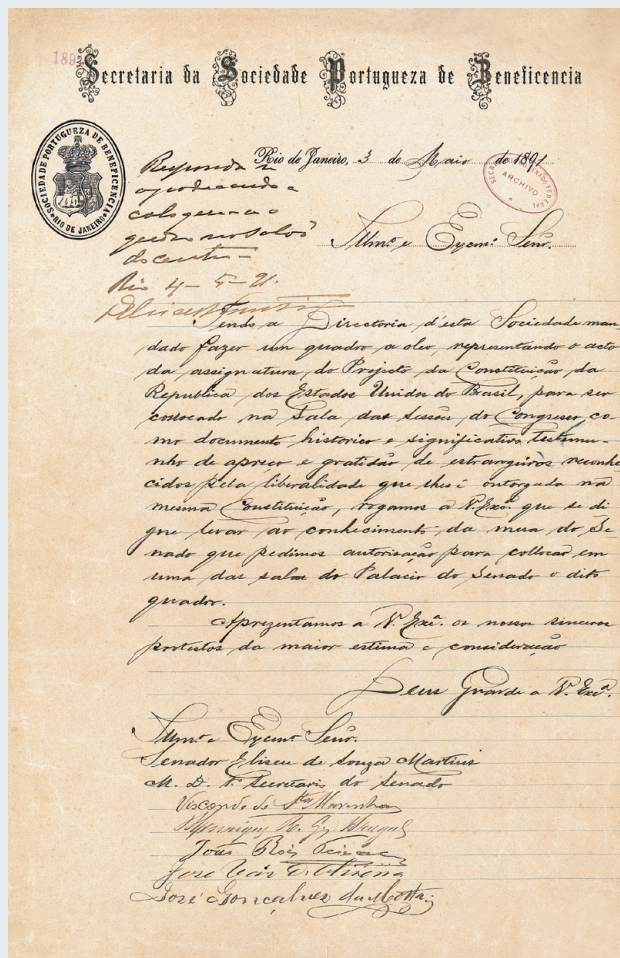 189
Secretaria da Sociedade Portugueza de Beneficencia
SOCIEDADE PORTUGUEZA DE BENEFICENCIA
RIO DE JANEIRO
Rio de Janeiro, 3 de Maio de 1891
ARCHIVO
Responda-se
agradecendo e
no salão
Rio 4-5-91.
Illmo. e Excmo. Senr.
Tendo a Directoria d'esta Sociedade man
dado fazer um quadro a oleo, representando o acto
da assignatura, do Projecto da Constituição da
Republica dos Estados Unidos do Brasil, para ser
collocado na Sala das Sessões do Congresso, co-
mo documento historico e significativo testemu-
nho de apreço e gratidão de estrangeiros reconhe
cidos pela liberalidade que lhes é outorgada na
mesma Constituição, rogamos a V. Exca. que se di
gne levar ao conhecimento da mesa do Se
nado que pedimos autorisação para collocar em
uma das salas do Palacio do Senado o dito
quadro.
Aprezentamos a V. Exca. os nossos sinceros
protestos da maior estima e consideração
Deus Guarde a V. Exca.
Illmo. e Excmo. Senr.
Senador Eliseu de Souza Martins
M. D. 1º Secretario do Senado
Visconde de Sta Marinha
João Reis
José
José Gonçalves da Motta